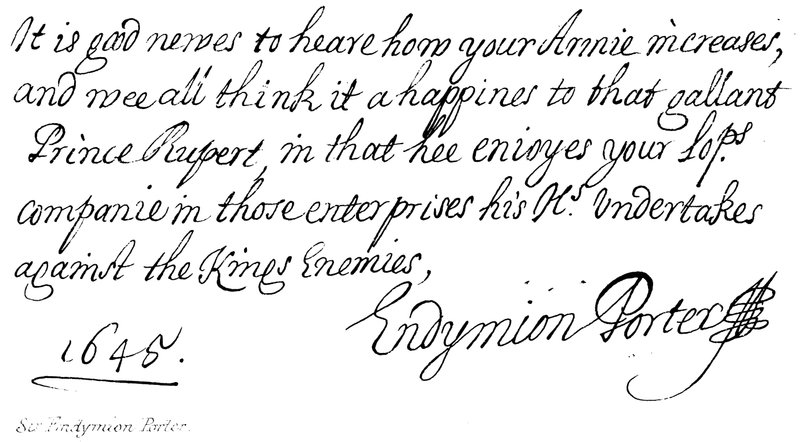 It is good newes to heare how your Armie increases,
and wee all think it a happines to that gallant
Prince Rupert, in that hee enioyes your Lop.s
companie in those enterprises his H.s Undertakes
against the Kings Enemies,
Endymion Porter
1645.
Sir Endymion Porter.